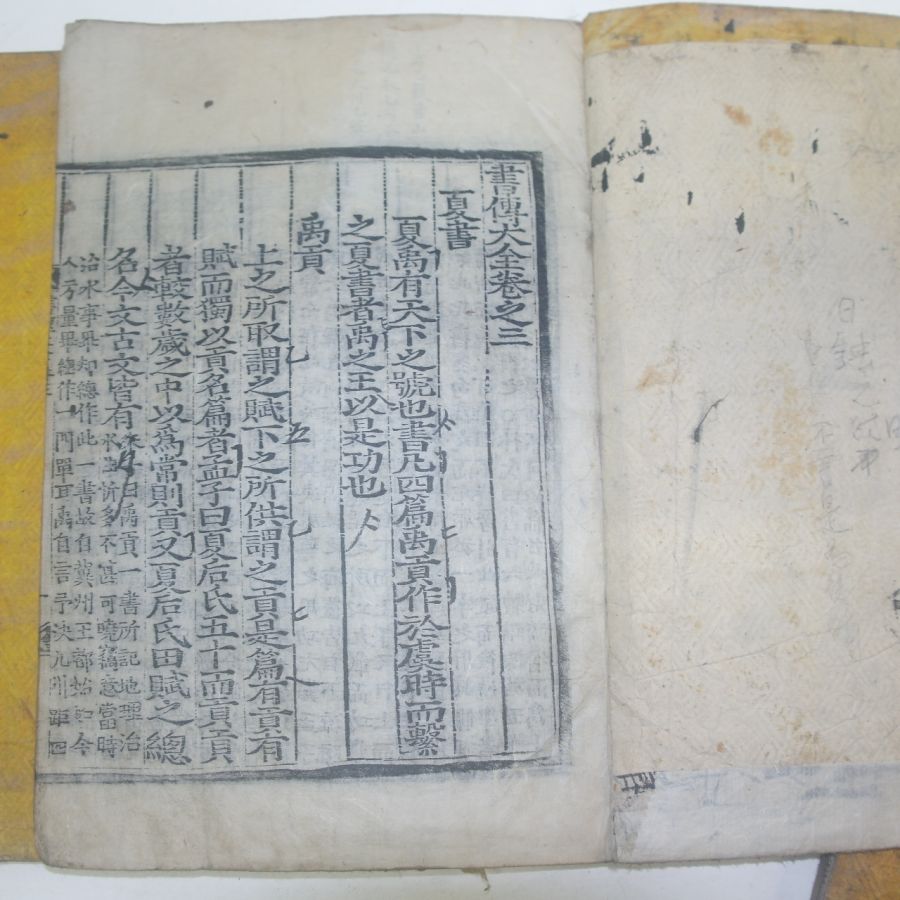 書傳大全卷之三
夏書
夏禹有天下之號也書凡四篇禹貢作於虞時而繫
之夏書者禹之王以是功也
禹貢
上之所取謂之賦下之所供謂之貢是篇有貢有
賦而獨以貢名篇者孟子曰夏后氏五十而貢貢
者較數歲之中以爲常則貢又夏后氏田賦之總
名今文古文皆有
曰禹貢一書所記地理治
水曲折多不甚可曉竊意當時
治水事畢却總作此一書故自冀州王都始如今
人方量畢總作一門單耳禹自言予決九川距四